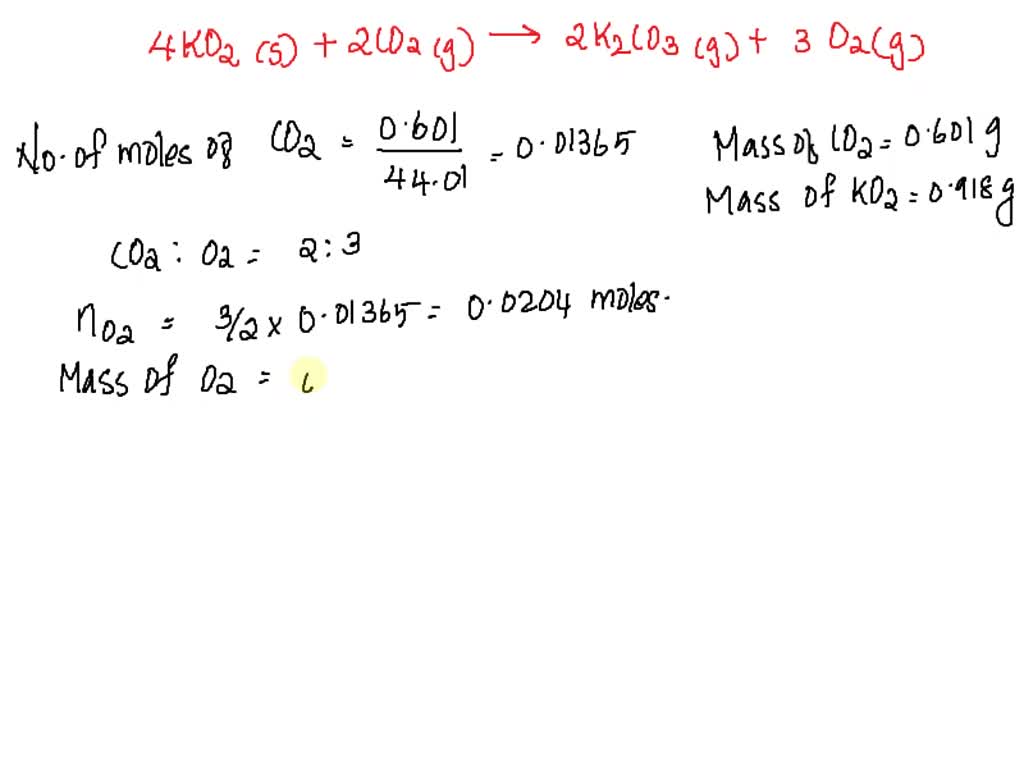 4KO2 (s) + 2CO2 (g) → 2K2CO3 (g) + 3 O2 (g)
No. of moles of CO2 = 0.601 / 44.01 = 0.01365
Mass of CO2 = 0.601 g
Mass of KO2 = 0.918 g
CO2 : O2 = 2:3
nO2 = 3/2 × 0.01365 = 0.0204 moles.
Mass of O2 =